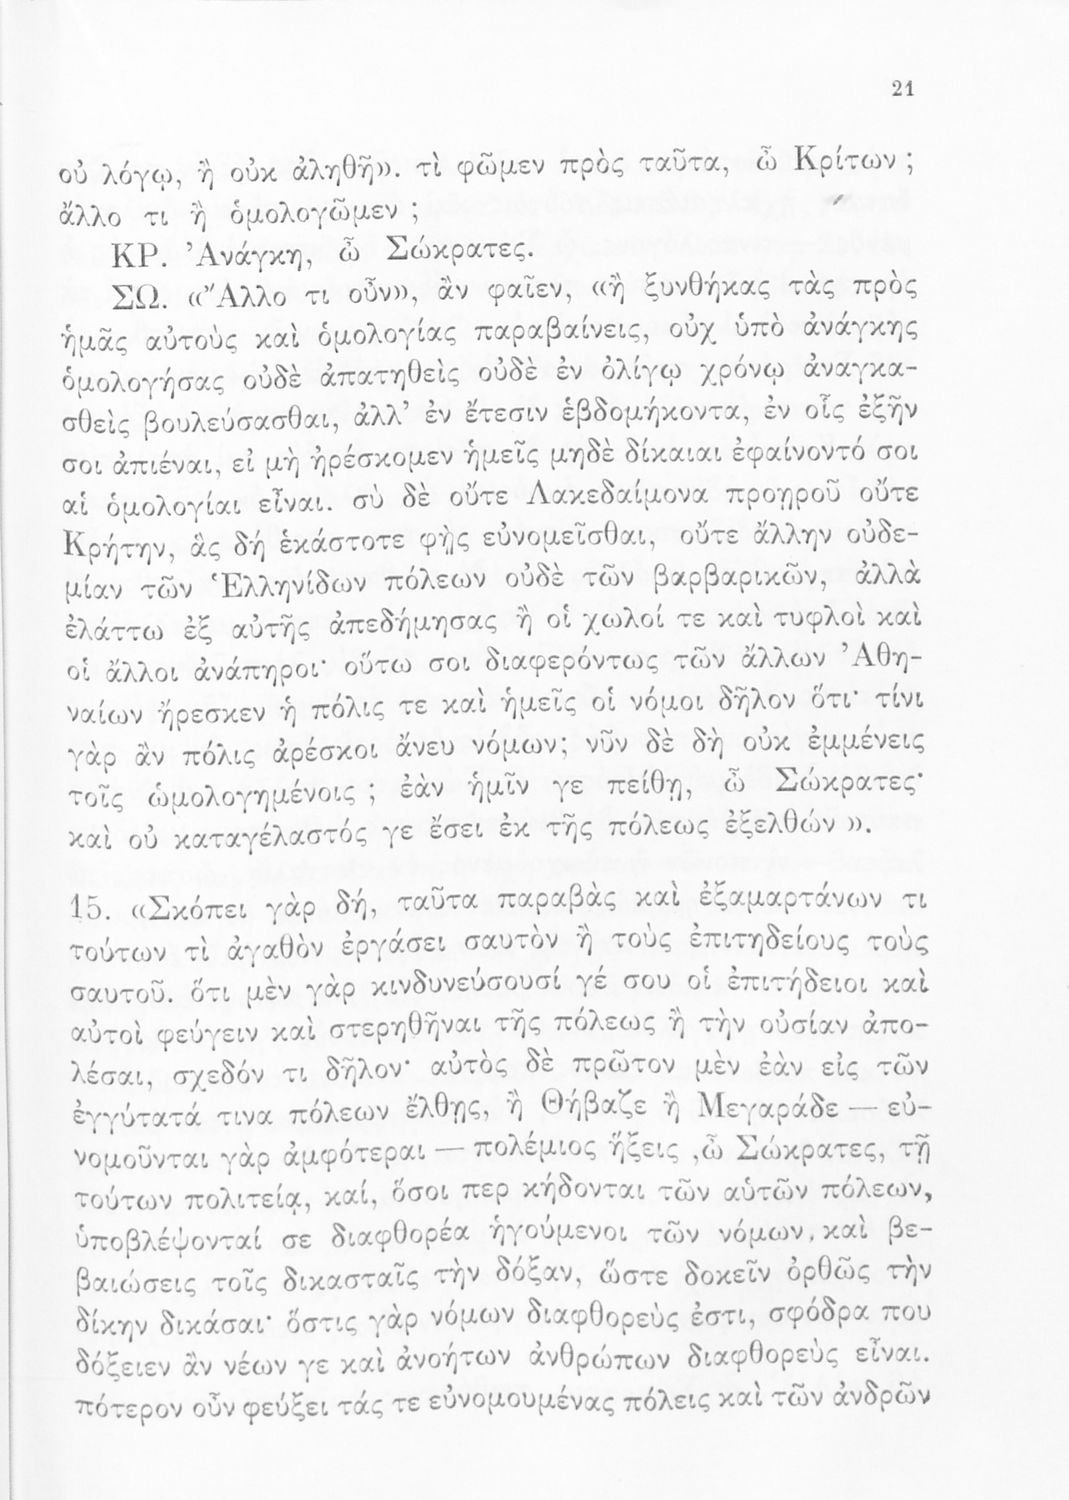 21
οὐ λόγῳ, ἢ οὐκ ἀληθῆ». τὶ φῶμεν πρὸς ταῦτα, ὦ Κρίτων ;
ἄλλο τι ἢ ὁμολογῶμεν ;
ΚΡ. Ἀνάγκη, ὦ Σώκρατες.
ΣΩ. «Ἄλλο τι οὖν», ἂν φαῖεν, «ἢ ξυνθήκας τὰς πρὸς
ἡμᾶς αὐτοὺς καὶ ὁμολογίας παραβαίνεις, οὐχ ὑπὸ ἀνάγκης
ὁμολογήσας οὐδὲ ἀπατηθεὶς οὐδὲ ἐν ὀλίγῳ χρόνῳ ἀναγκα-
σθεὶς βουλεύσασθαι, ἀλλ’ ἐν ἔτεσιν ἑβδομήκοντα, ἐν οἷς ἐξῆν
σοι ἀπιέναι, εἰ μὴ ἠρέσκομεν ἡμεῖς μηδὲ δίκαιαι ἐφαίνοντό σοι
αἱ ὁμολογίαι εἶναι. σὺ δὲ οὔτε Λακεδαίμονα προῃροῦ οὔτε
Κρήτην, ἃς δή ἑκάστοτε φῂς εὐνομεῖσθαι, οὔτε ἄλλην οὐδε-
μίαν τῶν Ἑλληνίδων πόλεων οὐδὲ τῶν βαρβαρικῶν, ἀλλὰ
ἐλάττω ἐξ αὐτῆς ἀπεδήμησας ἢ οἱ χωλοί τε καὶ τυφλοὶ καὶ
οἱ ἄλλοι ἀνάπηροι· οὕτω σοι διαφερόντως τῶν ἄλλων Ἀθη-
ναίων ἤρεσκεν ἡ πόλις τε καὶ ἡμεῖς οἱ νόμοι δῆλον ὅτι· τίνι
γὰρ ἂν πόλις ἀρέσκοι ἄνευ νόμων; νῦν δὲ δὴ οὐκ ἐμμένεις
τοῖς ὡμολογημένοις ; ἐὰν ἡμῖν γε πείθῃ, ὦ Σώκρατες·
καὶ οὐ καταγέλαστός γε ἔσει ἐκ τῆς πόλεως ἐξελθών ».
15. «Σκόπει γὰρ δή, ταῦτα παραβὰς καὶ ἐξαμαρτάνων τι
τούτων τὶ ἀγαθὸν ἐργάσει σαυτὸν ἢ τοὺς ἐπιτηδείους τοὺς
σαυτοῦ. ὅτι μὲν γὰρ κινδυνεύσουσί γέ σου οἱ ἐπιτήδειοι καὶ
αὐτοὶ φεύγειν καὶ στερηθῆναι τῆς πόλεως ἢ τὴν οὐσίαν ἀπο-
λέσαι, σχεδόν τι δῆλον· αὐτὸς δὲ πρῶτον μὲν ἐὰν εἰς τῶν
ἐγγύτατά τινα πόλεων ἔλθῃς, ἢ Θήβαζε ἢ Μεγαράδε — εὐ-
νομοῦνται γὰρ ἀμφότεραι — πολέμιος ἥξεις ,ὦ Σώκρατες, τῇ
τούτων πολιτείᾳ, καί, ὅσοι περ κήδονται τῶν αὑτῶν πόλεων,
ὑποβλέψονταί σε διαφθορέα ἡγούμενοι τῶν νόμων, καὶ βε-
βαιώσεις τοῖς δικασταῖς τὴν δόξαν, ὥστε δοκεῖν ὀρθῶς τὴν
δίκην δικάσαι· ὅστις γὰρ νόμων διαφθορεὺς ἐστι, σφόδρα που
δόξειεν ἂν νέων γε καὶ ἀνοήτων ἀνθρώπων διαφθορεὺς εἶναι.
πότερον οὖν φεύξει τάς τε εὐνομουμένας πόλεις καὶ τῶν ἀνδρῶν